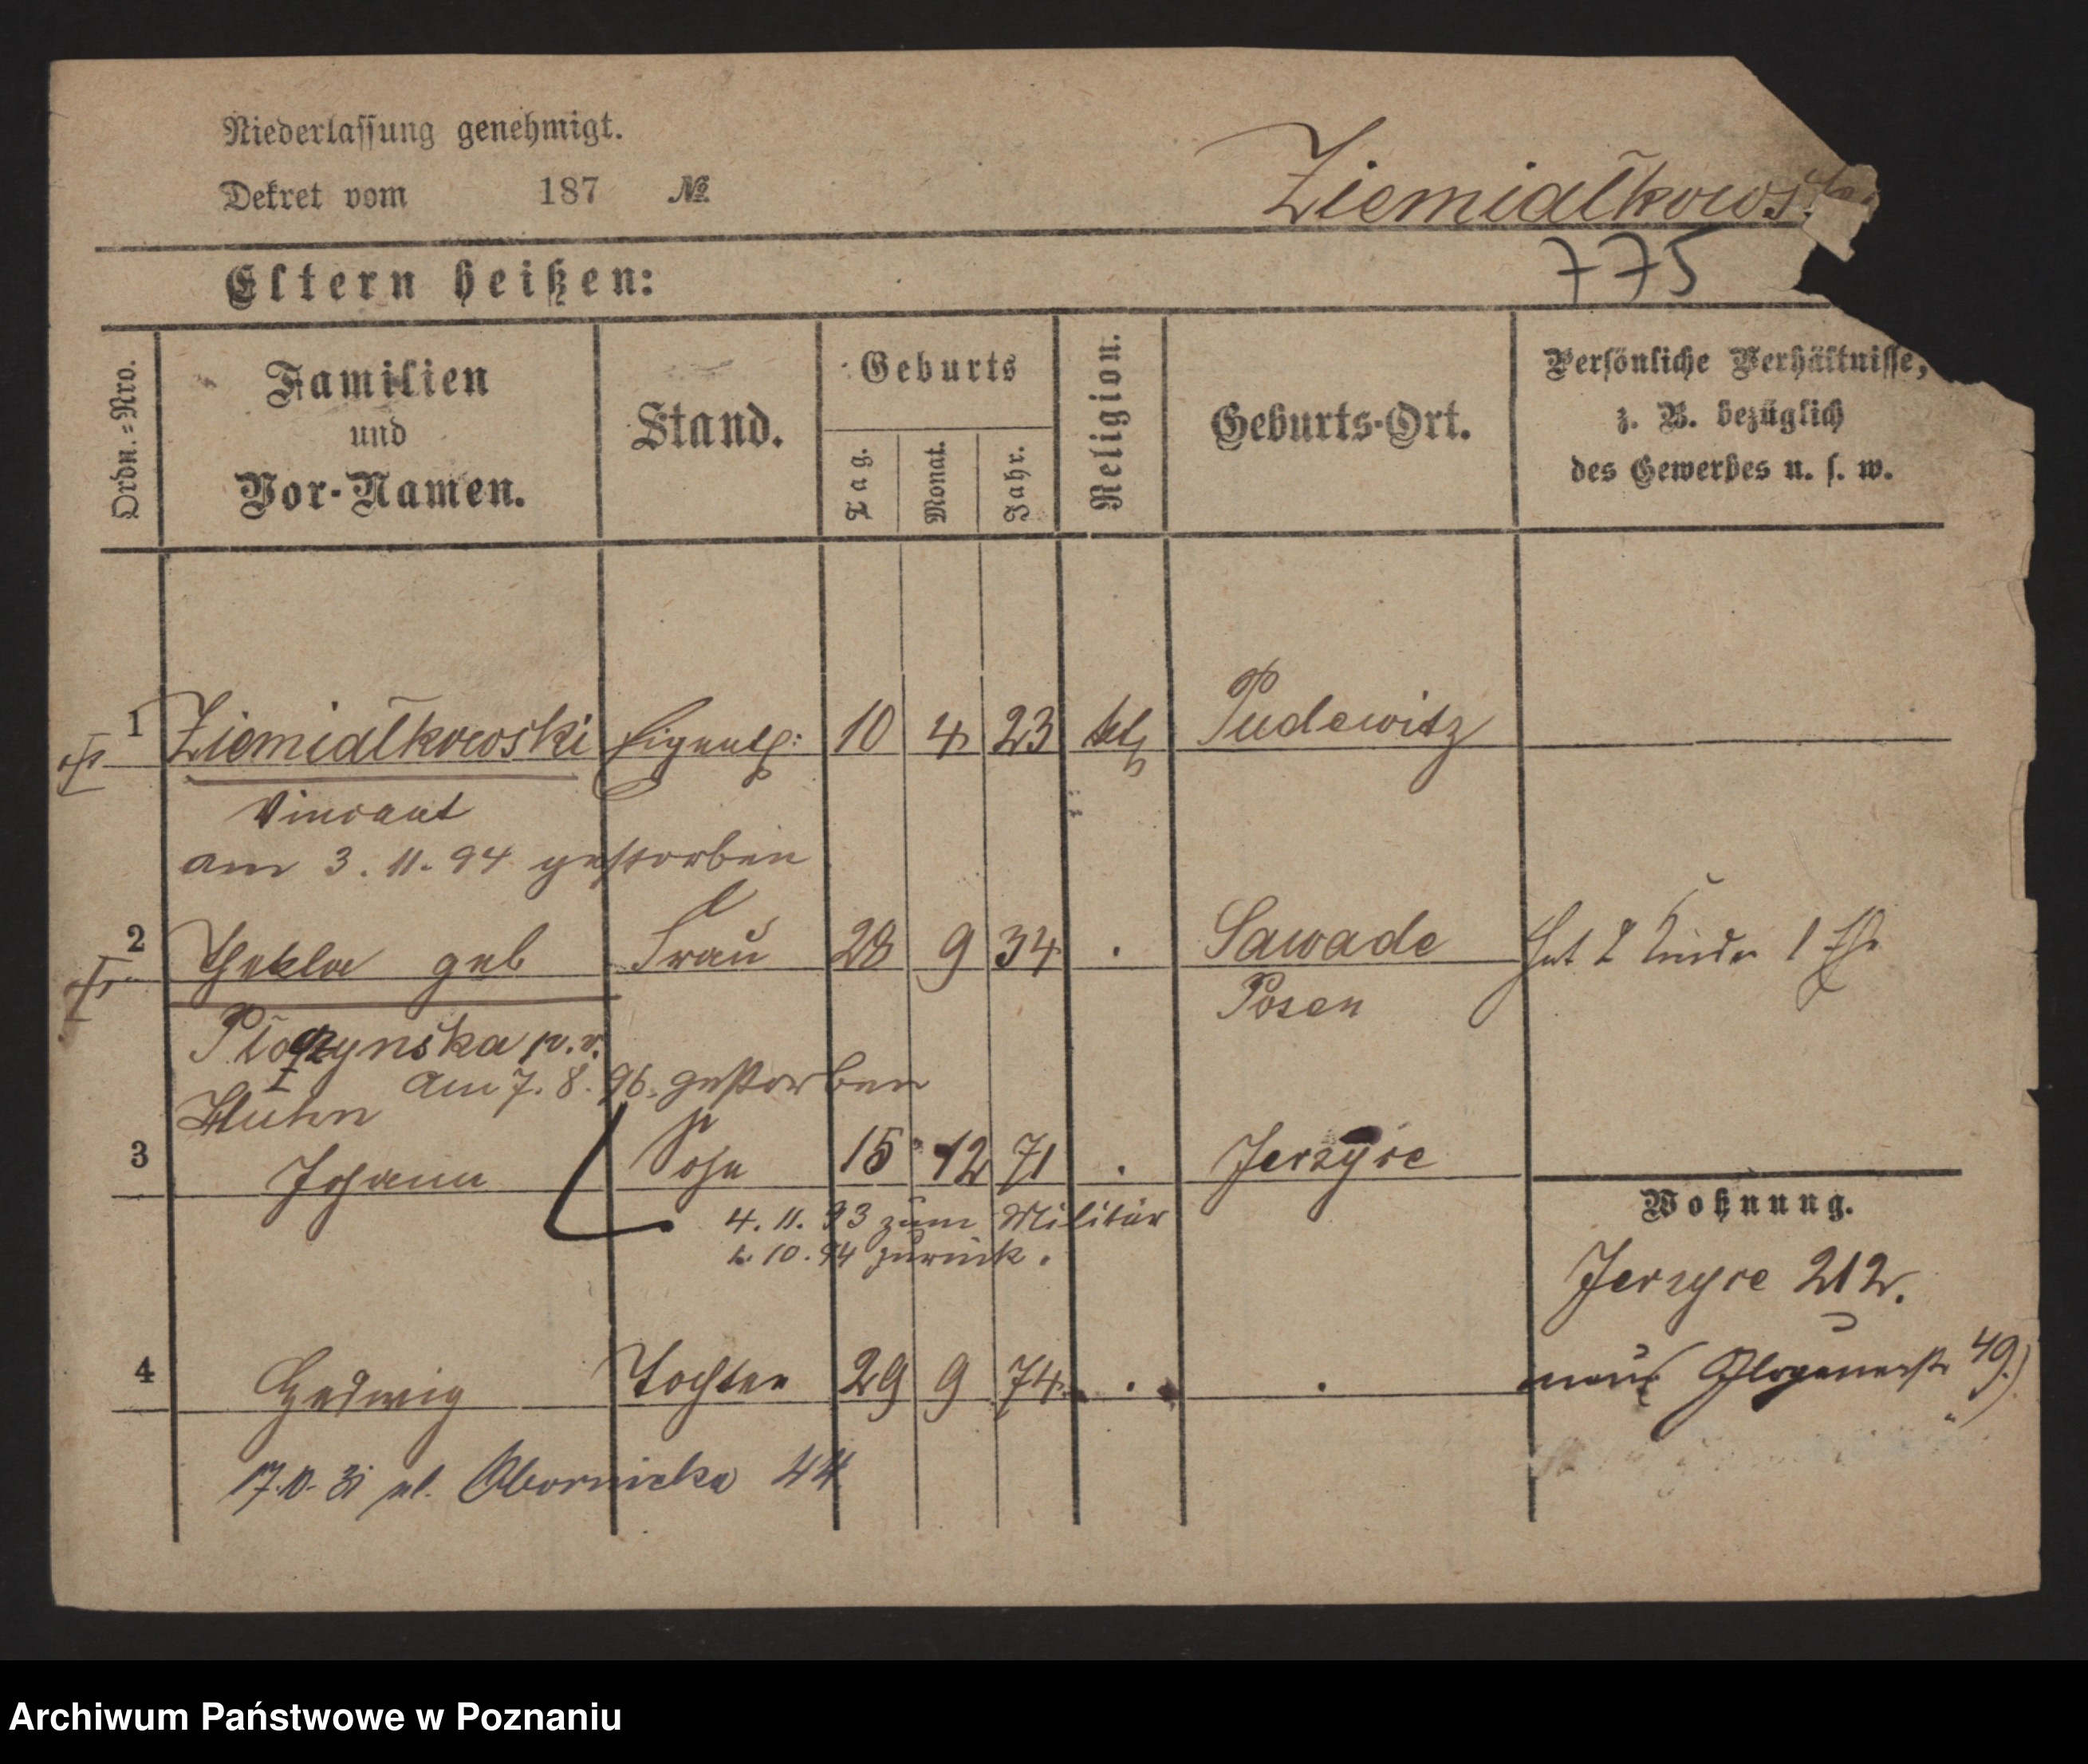 Niederlassung genehmigt.
Dekret vom 187 №
Ziemiałkows
775
Eltern heißen:
Ordn.=Nro.
Familien
und
Vor-Namen.
Stand.
Geburts
Tag.
Monat.
Jahr.
Religion.
Geburts-Ort.
Persönliche Verhältnisse,
z. B. bezüglich
des Gewerbes u. s. w.
1 Ziemiałkowski Eigenth: 10 4 23 kth Pudewitz
Vincent
am 3.11.94 gestorben
2 Thekla geb Frau 28 9 34 . Sawade Hat 2 Kinder 1 Ehe
Posen
am 7.8.96. gestorben
3 Johann Sohn 15 12 71 . Jerzyce
4.11.93 zum Militär
10.94 zurück.
Wohnung.
Jerzyce 212.
4 Hedwig Tochter 29 9 74 . .
neue Glogauerstr 49.)
ul. Obornicka 44
Archiwum Państwowe w Poznaniu